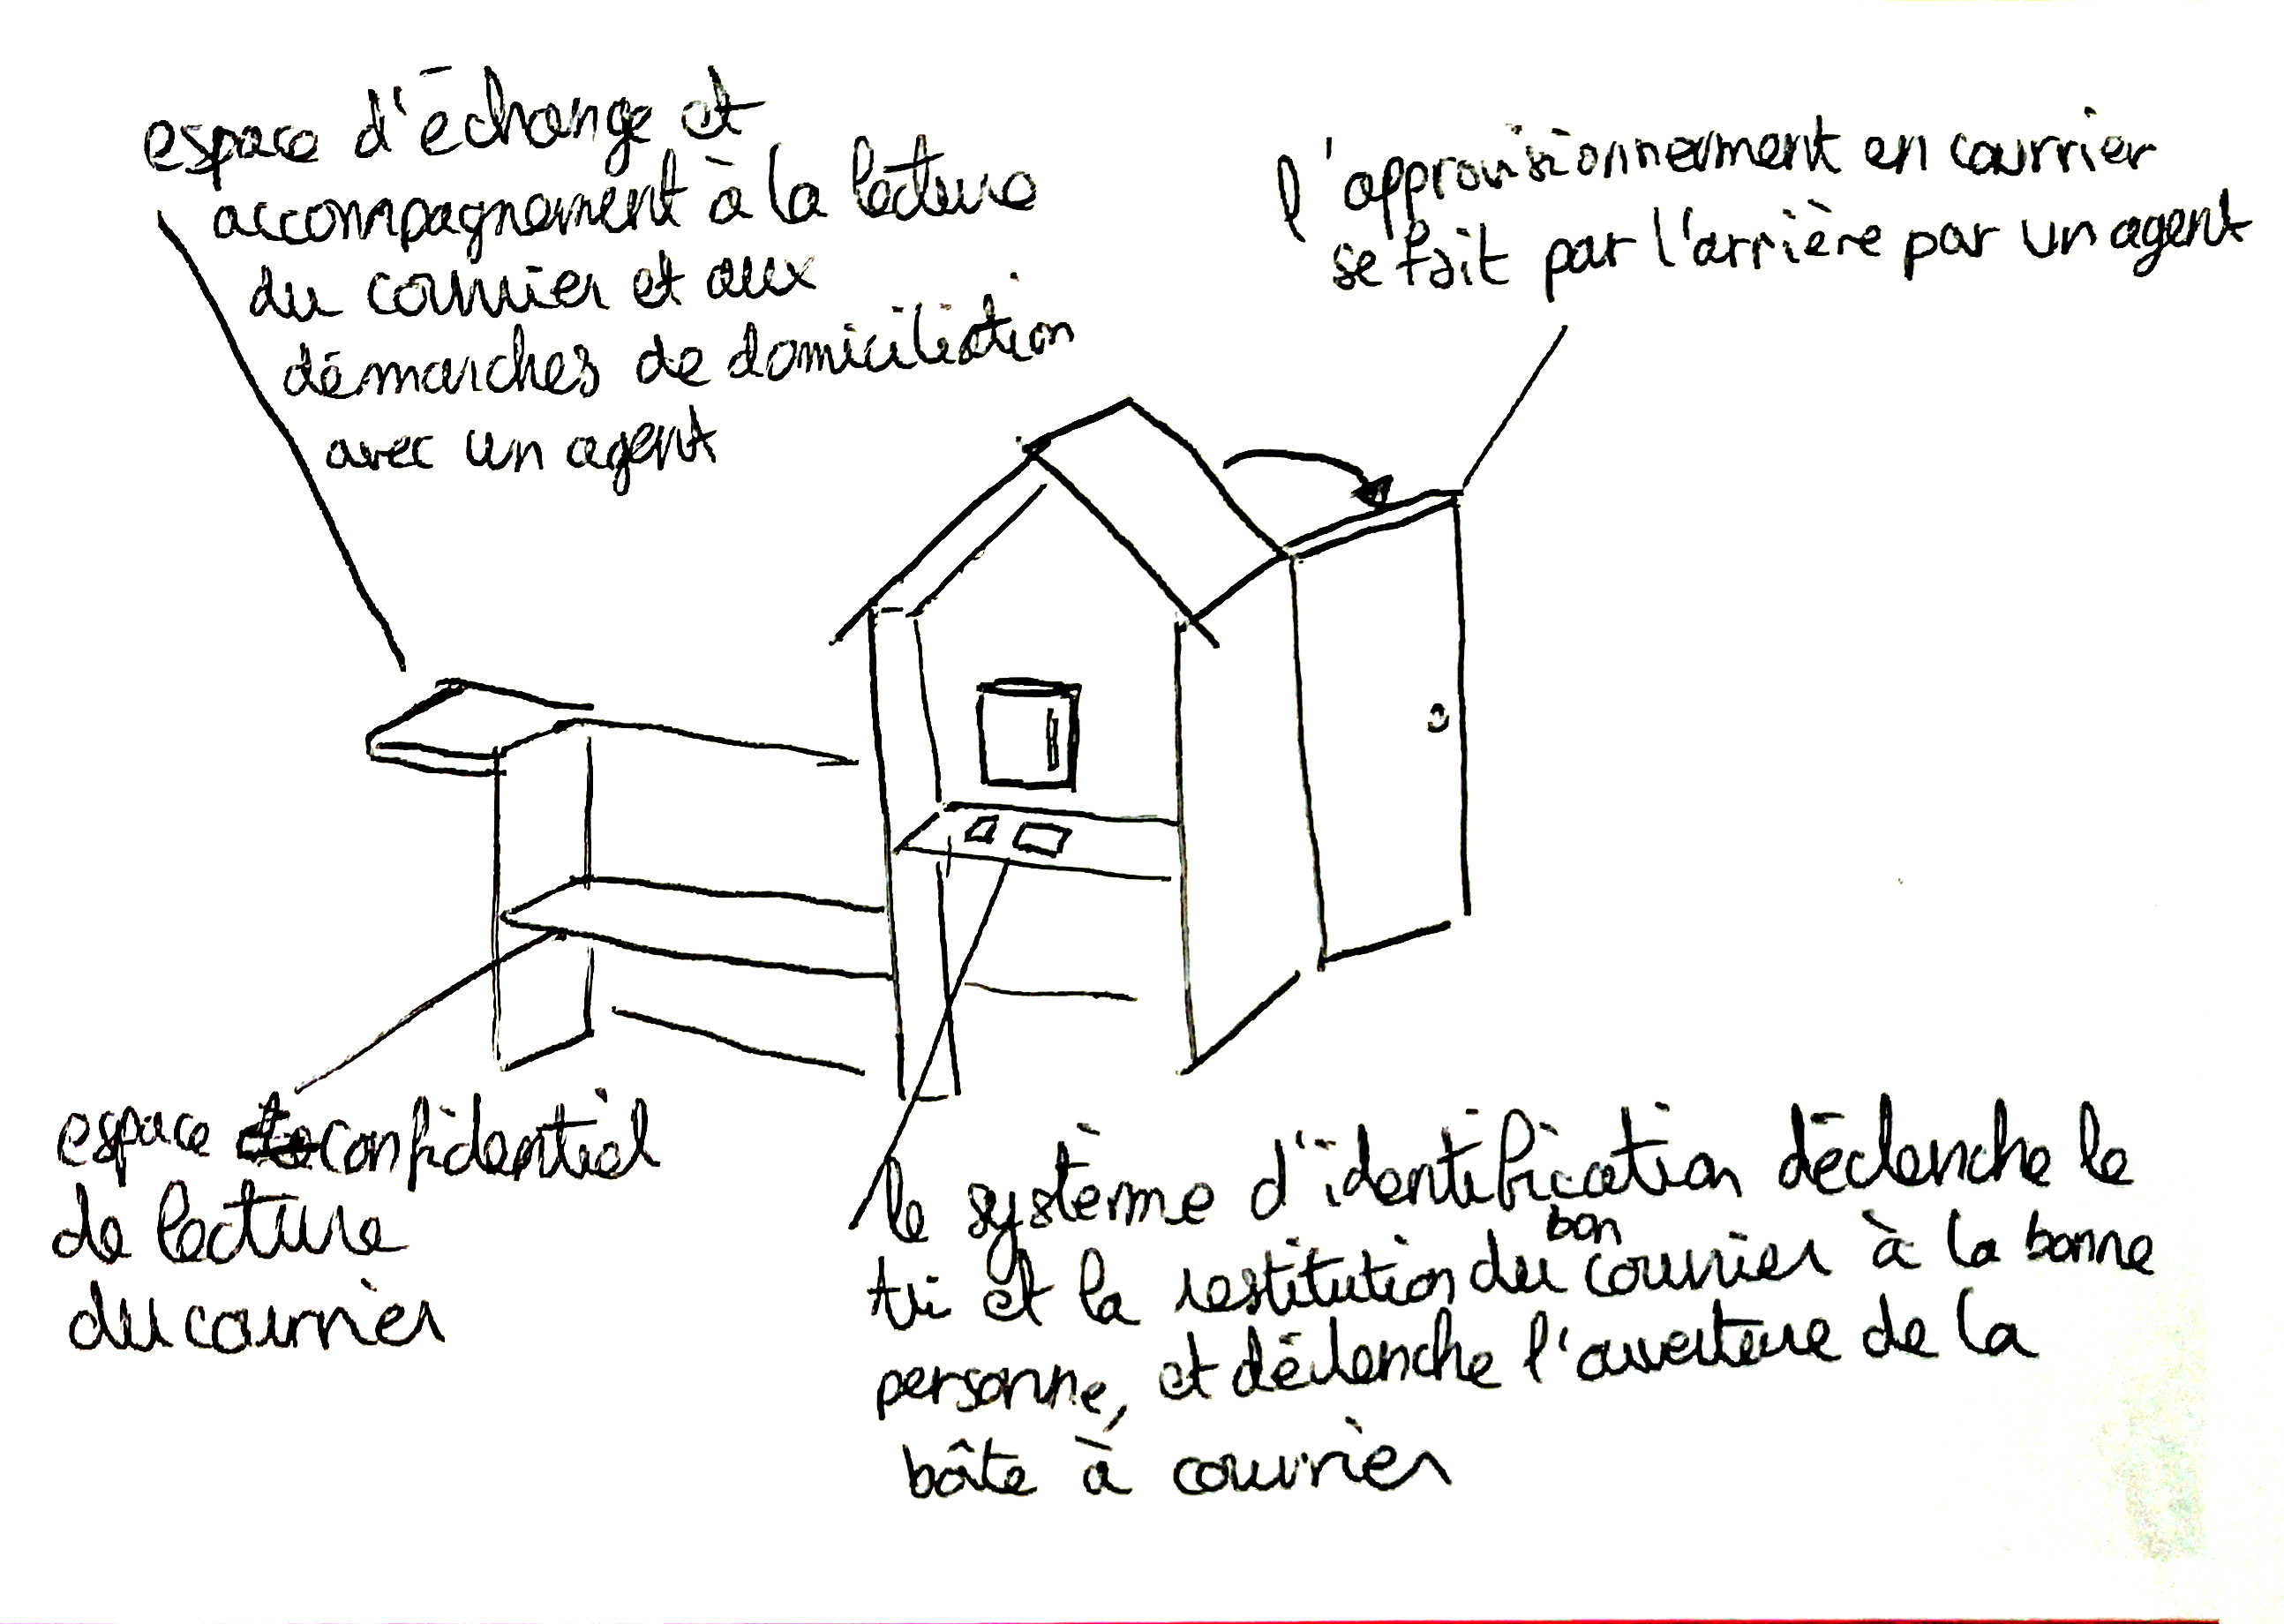 espace d'échange et
accompagnement à la lecture
du courrier et aux
démarches de domiciliation
avec un agent
l'approvisionnement en courrier
se fait par l'arrière par un agent
espace confidentiel
de lecture
du courrier
le système d'identification déclenche le
tri et la restitution du bon courrier à la bonne
personne, et déclenche l'ouverture de la
boîte à courrier